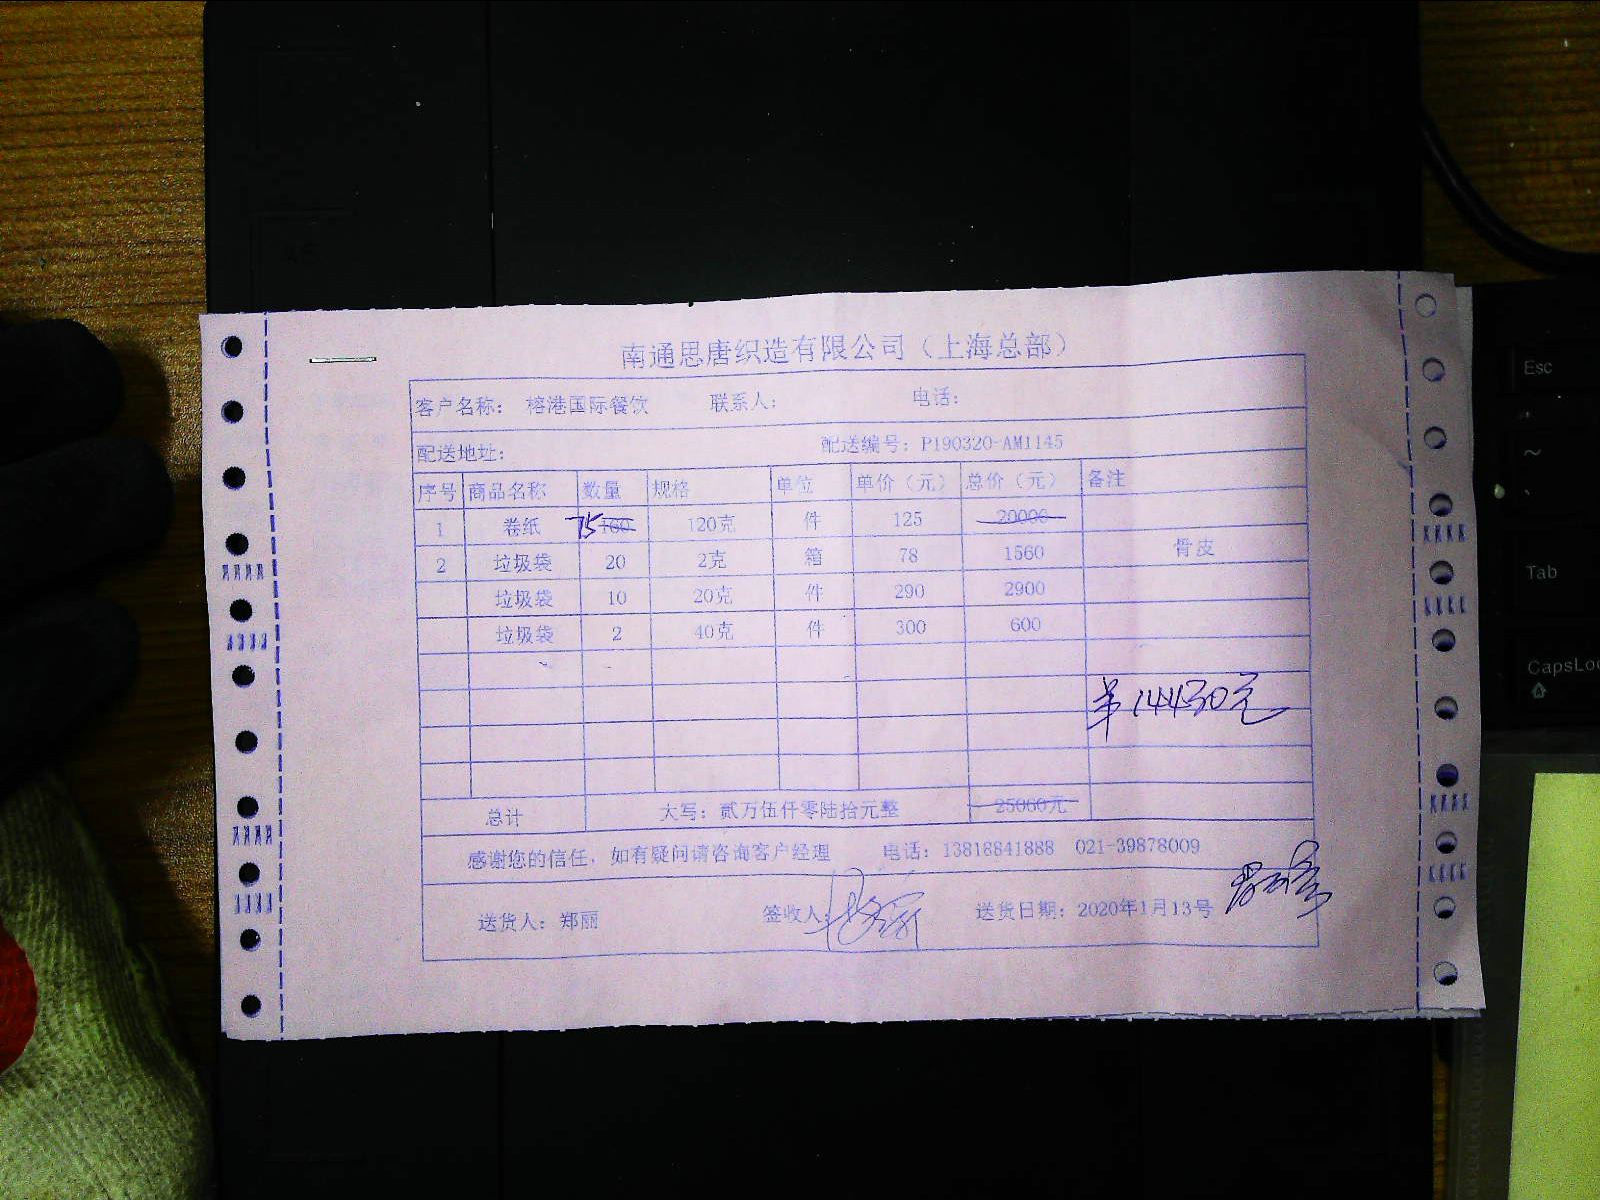 南通思唐织造有限公司（上海总部）
客户名称： 榕港国际餐饮 联系人： 电话：
配送地址： 配送编号：P190320-AM1145
序号 商品名称 数量 规格 单位 单价（元） 总价（元） 备注
1 卷纸 75 160 120克 件 125 20000
2 垃圾袋 20 2克 箱 78 1560 骨皮
垃圾袋 10 20克 件 290 2900
垃圾袋 2 40克 件 300 600
14430元
总计 大写：贰万伍仟零陆拾元整 25060元
感谢您的信任，如有疑问请咨询客户经理 电话：13818841888 021-39878009
送货人：郑丽 签收人： 送货日期：2020年1月13号
Esc
~
Tab
CapsLoc